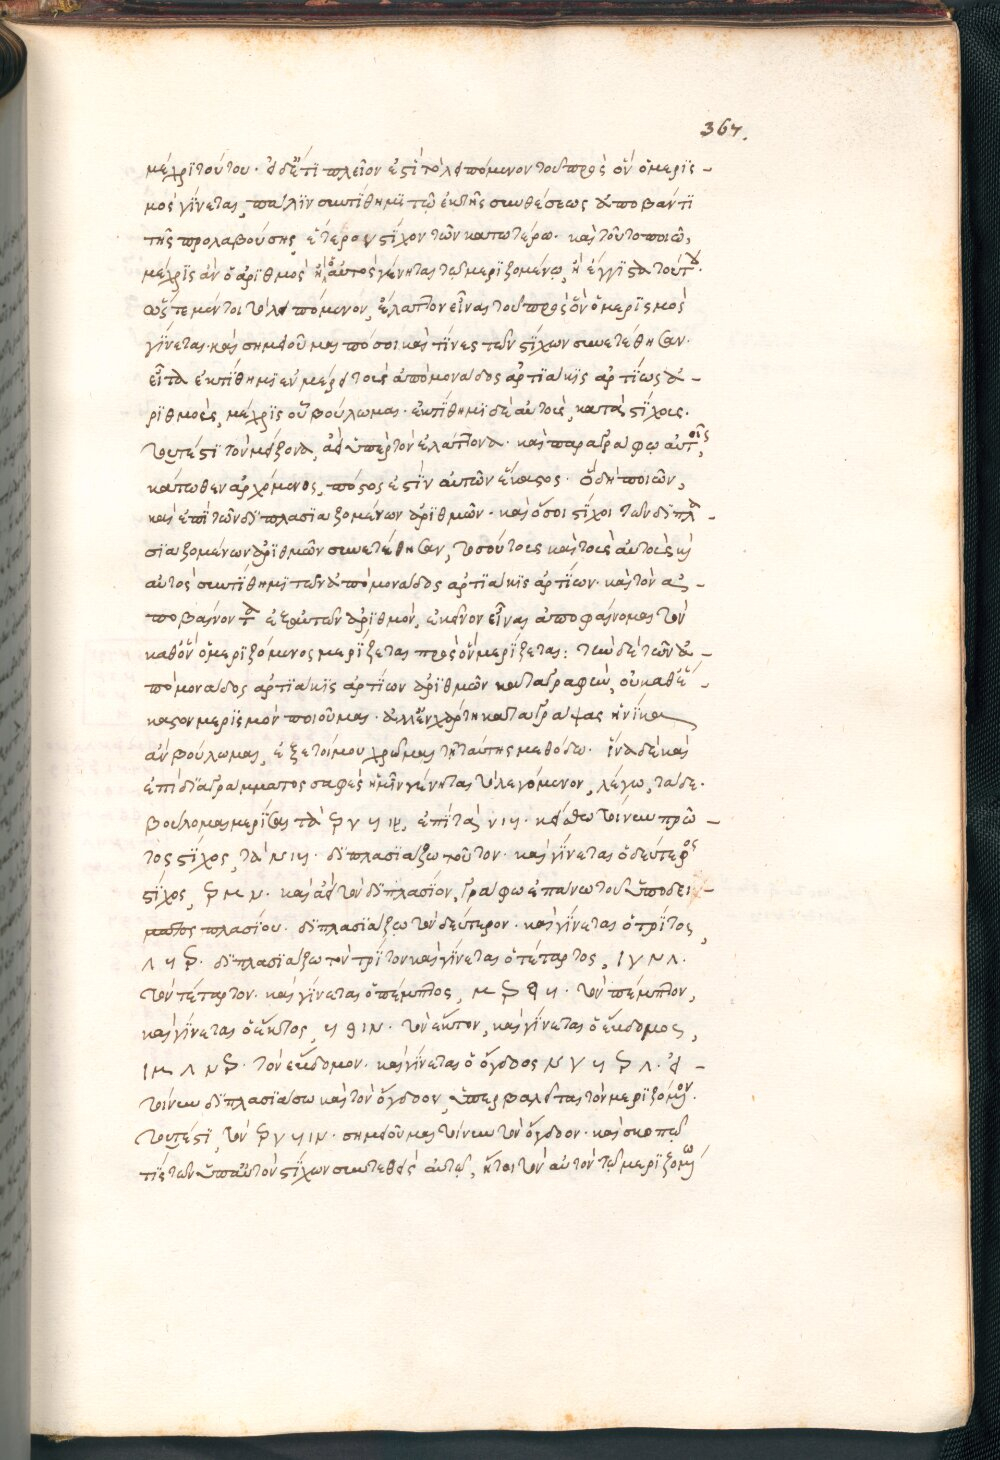 367.
μέχρι τούτου· εἰ δὲ ἔτι πλεῖον ἐστὶ τὸ λειπόμενον τοῦ πρὸς ὃν ὁ μερϊς -
μὸς γίνεται, πάλϊν συντίθημϊ τῷ ἐκ τῆς συνθέσεως ἀποβάντϊ
τῆς προλαβούσης ἕτερον στίχον τῶν κατωτέρω· καὶ τοῦτο ποιῶ,
μέχρϊς ἂν ὁ ἀρϊθμὸς ἢ ὁ αὐτὸς γένηται τῷ μερϊζομένῳ, ἢ ἔγγϊστα τούτ
ὥστε μέντοι τὸ λειπόμενον, ἔλαττον εἶναι τοῦ πρὸς ὃν ὁ μερϊσμὸς
γίνεται· καὶ σημειοῦμαι πόσοι καὶ τίνες τῶν στίχων συνετέθησαν·
εἶτα ἐκτίθημϊ ἐν μέρει τοὺς ἀπὸ μονάδος ἀρτϊάκϊς ἀρτίους ἀ -
ρϊθμοὺς, μέχρϊς οὗ βούλωμαι· ἐκτίθημϊ δὲ αὐτοὺς, κατὰ στίχους·
τουτέστϊ τὸν μείζονα, ἀεὶ ὑπὲρ τὸν ἐλάττονα· καὶ παραγράφω αὐτοῖς,
κάτωθεν ἀρχόμενος, πόστος ἐστὶν αὐτῶν ἕκαστος· ὃ δὴ ποιῶν,
καὶ ἐπὶ τῶν δϊπλασϊαζομένων ἀρϊθμῶν· καὶ ὅσοι στίχοι τῶν δϊπλα -
σϊαζομένων ἀρϊθμῶν συνετέθησαν, τοσούτους καὶ τοὺς αὐτοὺς κ
αὐτὸς συντίθημϊ τῶν ἀπὸ μονάδος ἀρτϊάκϊς ἀρτίων· καὶ τὸν ἀ -
ποβαίνοντα ἐξ αὐτῶν ἀρϊθμὸν, ἐκεῖνον εἶναι ἀποφαίνομαι τὸν
καθ' ὃν ὁ μερϊζόμενος μερϊζεται πρὸς ὃν μερίζεται: τὴν δὲ τῶν ἀ -
πὸ μονάδος ἀρτϊάκϊς ἀρτίων ἀρϊθμῶν καταγραφὴν, οὐ καθ' ἕ -
καστον μερϊσμὸν ποιοῦμαι· ἀλλ' ἐν χάρτῃ καταγράψας ἡνίκα
ἂν βούλωμαι, ἐξ ἑτοίμου χρῶμαι τῇ ταύτης μεθόδῳ· ἵνα δὲ καὶ
ἐπὶ δϊαγράμματος σαφὲς ἡμῖν γένηται τὸ λεγόμενον, λέγω, τάδε·
τος στίχος,
στίχος,
δϊπλασϊάζω τὸν δεύτερον· καὶ γίνεται ὁ τρίτος
δϊπλασϊάζω τὸν τρίτον καὶ γίνεται ὁ τέταρτος,
τὸν τέταρτον· καὶ γίνεται ὁ πέμπτος, τὸν πέμπτον,
καὶ γίνεται ὁ ἕκτος, τὸν ἕκτον, καὶ γίνεται ὁ ἕβδομος,
τὸν ἕβδομον· καὶ γίνεται ὁ ὄγδοος
τοίνυν δϊπλασϊάσω καὶ τὸν ὄγδοον, ὑπερβαλεῖται τὸν μερϊζόμενον·
τουτέστϊ, τὸν σημειοῦμαι τοίνυν τὸν ὄγδοον· καὶ σκοπῶ
τίς τῶν ὑπ' αὐτὸν στίχων συντεθεὶς αὐτῷ, ἤτοι τὸν αὐτὸν τῷ μερϊζομένῳ